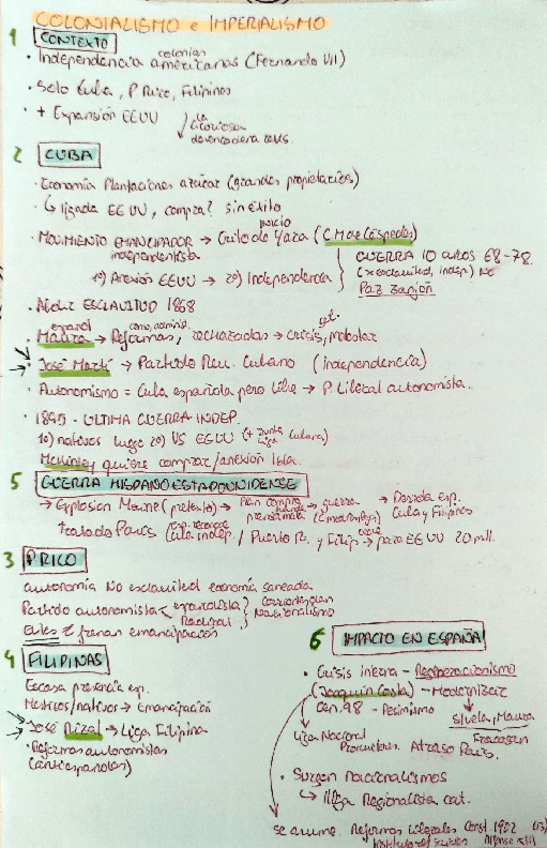 COLONIALISMO e IMPERIALISMO
1 CONTEXTO
colonias
· Independencia americanas (Fernando VII)
· Solo Cuba, P Rico, Filipinas
· + Expansión EEUU
la
2 CUBA
· Economía Plantaciones azúcar (grandes propietarios)
· ↳ ligada EEUU, compra? sin éxito
INICIO
· MOVIMIENTO EMANCIPADOR → Grito de Yara (C M de Céspedes)
independentista
GUERRA 10 años 68-78.
1º) Anexión EEUU → 2º) Independencia
(x esclavitud, indep.) NO
Paz Zanjón
· Abolir ESCLAVITUD 1868
español
· Maura → Reformas, rechazadas → crisis, malestar
· José Martí → Partido Rev. Cubano (independencia)
· Autonomismo = Cuba española pero libre → P. Liberal autonomista.
· 1895 - ULTIMA GUERRA INDEP.
1º) nativos luego 2º) VS EEUU (+ Junta Cubana)
Mckinley quiere comprar/anexion Isla.
5 GUERRA HISPANOESTADOUNIDENSE
→ Explosion Maine (pretexto) → Plan compra → guerra → Perdida esp.
prensa Cuba y Filipinas
tratado París Cuba indep. / Puerto R. y Filip → para EEUU 20 mill.
3 P RICO
autonomía No esclavitud economía saneada
Partido autonomista españolista
Radical Nacionalismo
frenan emancipación
4 FILIPINAS
Escasa presencia esp.
Mestizos/nativos → Emancipación
→ José Rizal → Liga Filipina
· Reformas autonomistas
(antiespañolas)
6 IMPACTO EN ESPAÑA
· Crisis interna - Regeneracionismo
(Joaquín Costa) - Modernizar
Gen. 98 - Pesimismo
Silvela, Maura
Fracasan
Liga Nacional
Productores. Atraso País.
· Surgen nacionalismos
↳ Lliga Regionalista cat.
se asume. Reformas liberales Const. 1902
Alfonso XIII